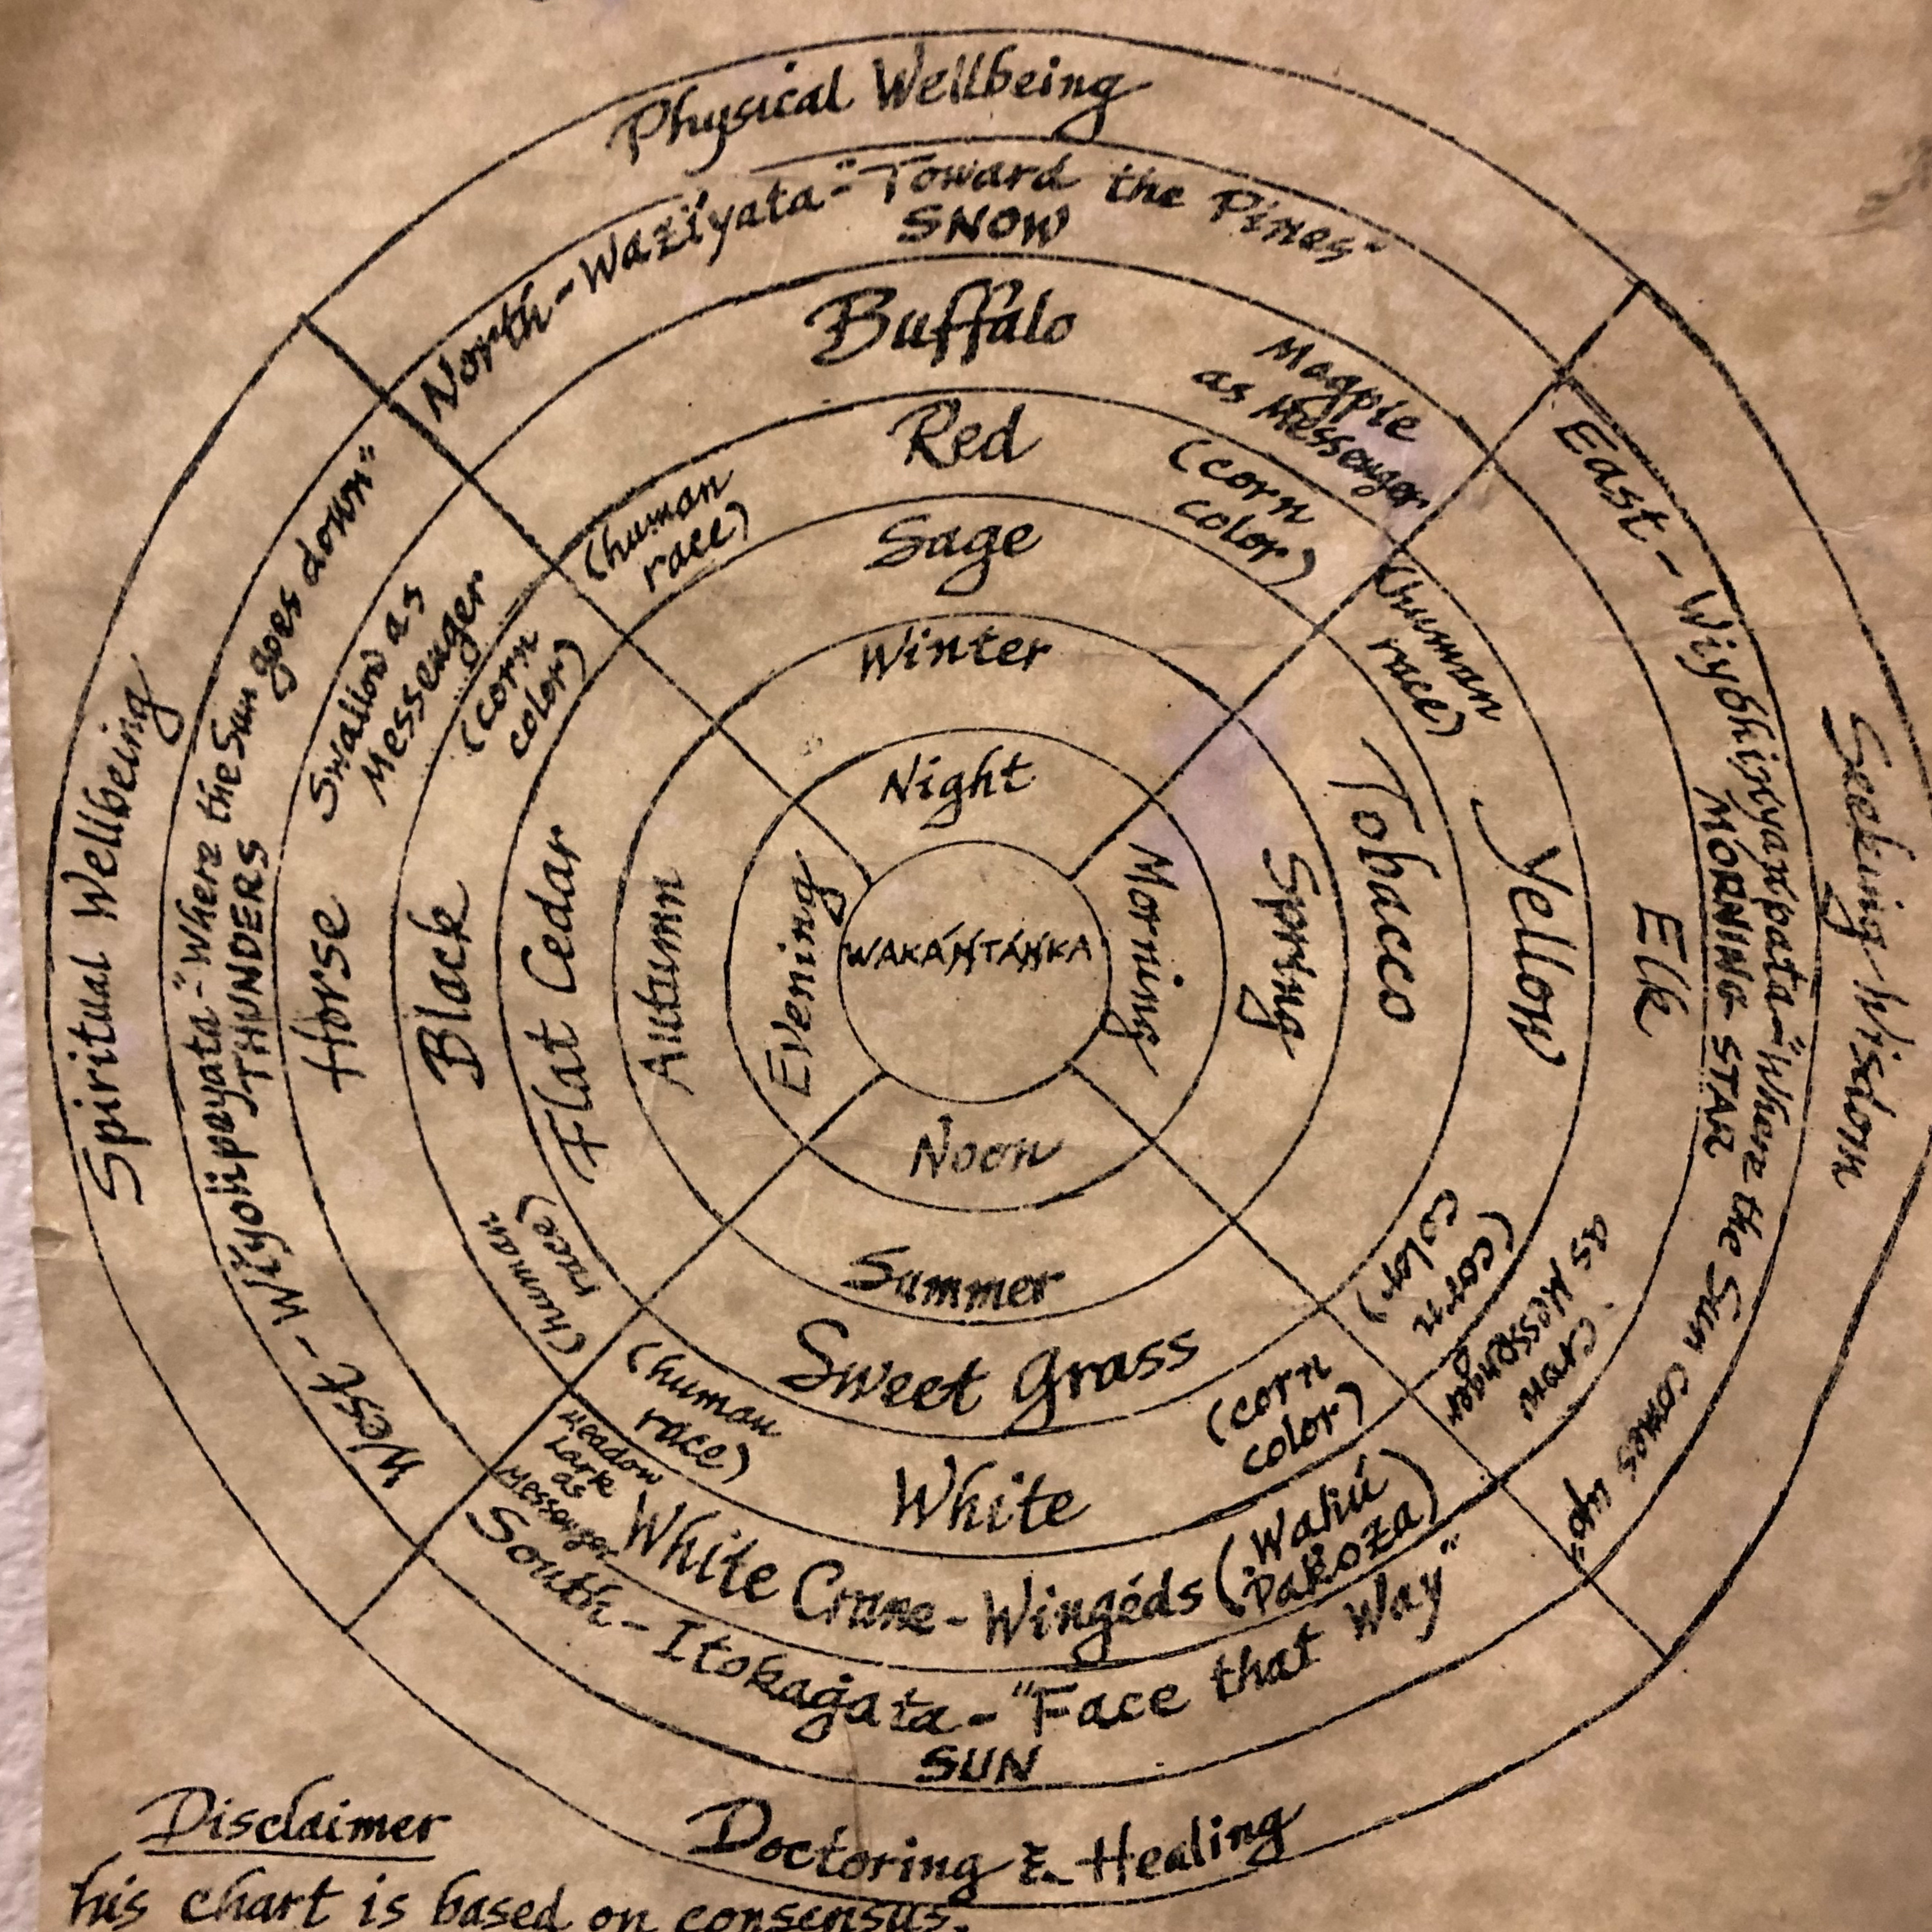 Physical Wellbeing
North - Waziyata - "Toward the Pines"
SNOW
Buffalo
Magpie
as Messenger
Red
(human
race)
(corn
color)
Sage
Winter
Night
East - Wiyohinyanpata - "Where the Sun comes up"
MORNING STAR
Seeking Wisdom
Elk
Crow
as Messenger
(human
race)
Yellow
(corn
color)
Tobacco
Spring
Morning
WAKÁŃTÁŃKA
Noon
Summer
Sweet Grass
(human
race)
White
(corn
color)
Meadow
Lark
as
Messenger
White Crane - Wingéds (Wahú
Pakoza)
South - Itokagata - "Face that Way"
SUN
Doctoring & Healing
Spiritual Wellbeing
West - Wiyohpeyata - "Where the Sun goes down"
THUNDERS
Swallow as
Messenger
Horse
(corn
color)
Black
(human
race)
Flat Cedar
Autumn
Evening
Disclaimer
his chart is based on consensus.